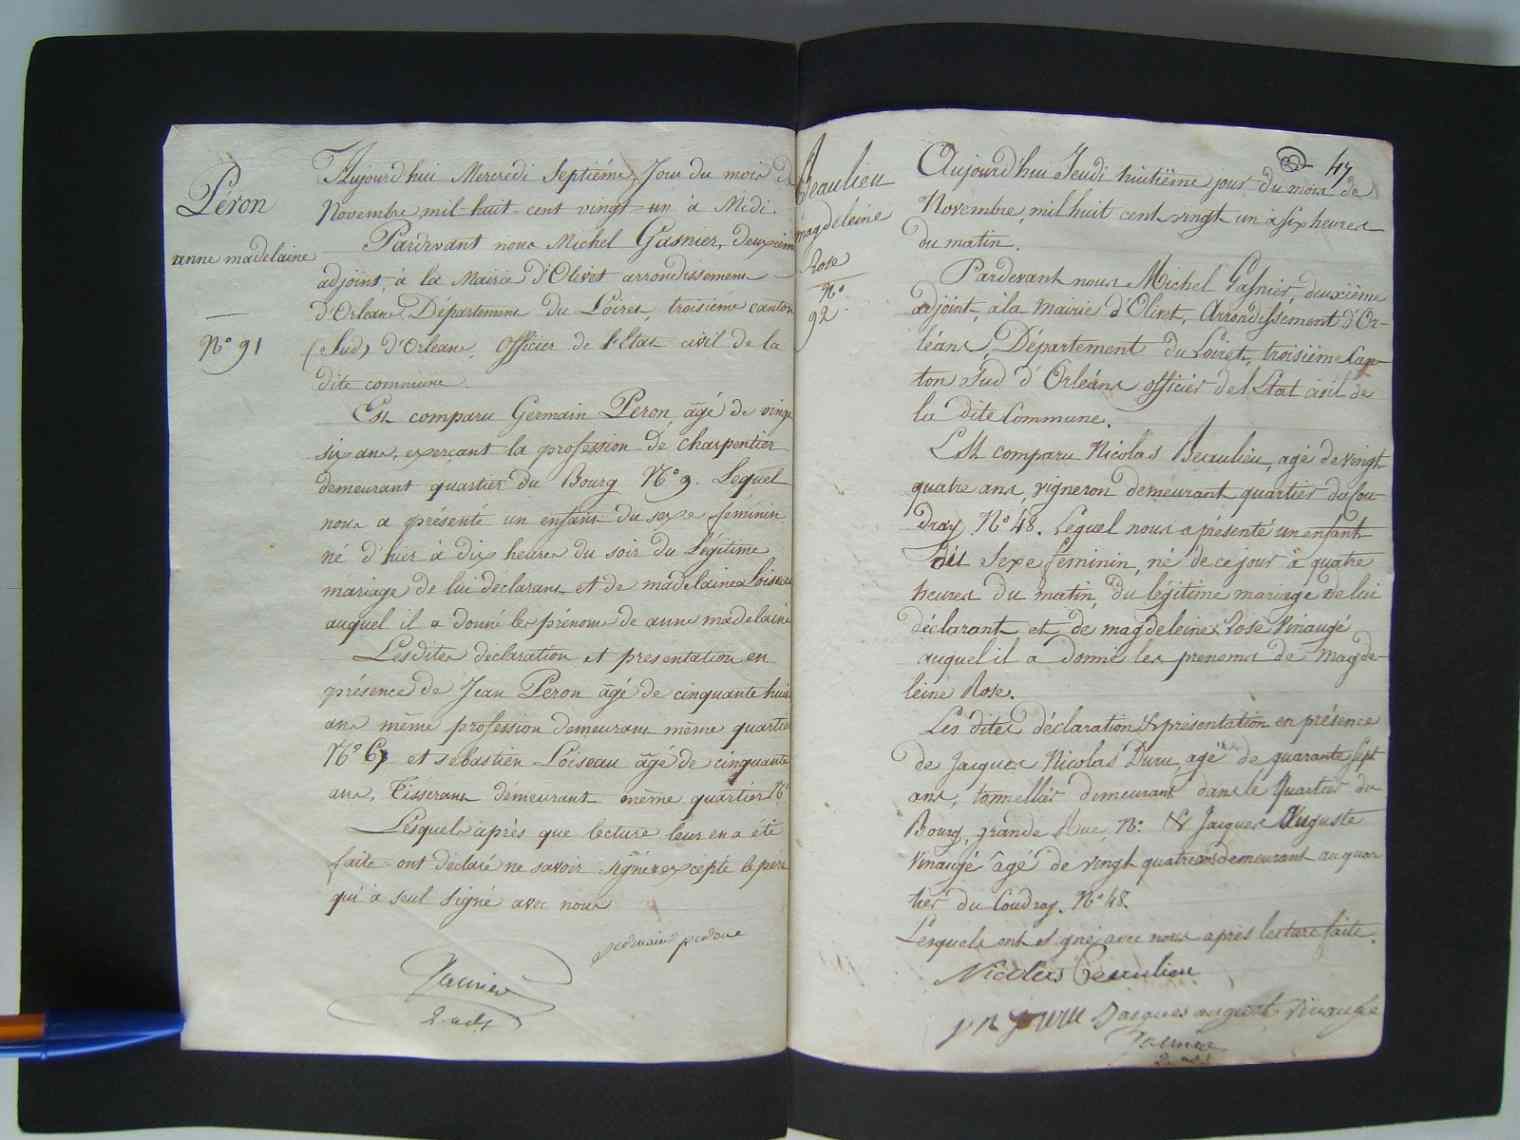 Péron
anne madelaine
N° 91
Aujourd'hui Mercredi Septième Jour du mois de
Novembre mil-huit-cent vingt-un à Midi.
Pardevant nous Michel Gasnier, deuxième
adjoint, à la Mairie d'Olivet arrondissement
d'Orléans, Département du Loiret, troisième canton
(Sud) d'Orléans, Officier de l'Etat civil de la
dite commune
Est comparu Germain Peron âgé de vingt
six ans, exerçant la profession de charpentier
demeurant quartier du Bourg N° 9. Lequel
nous a présenté un enfant du sexe féminin
né d'hier à dix heures du soir du légitime
mariage de lui déclarant et de madelaine Loiseau
auquel il a donné les prénoms de anne madelaine
Lesdites déclaration et présentation en
présence de Jean Peron âgé de cinquante huit
ans même profession demeurant même quartier
N° 6, et sebastien Loiseau âgé de cinquante
ans, Tisserant demeurant même quartier N°
Lesquels après que lecture leur en a été
faite ont déclaré ne savoir signer excepté le père
qui a seul signé avec nous
germain perone
Gasnier
2. adj
47
Beaulieu
magdeleine
Rose
N°
92
Aujourd'hui Jeudi huitième jour du mois de
Novembre, mil huit cent vingt un à six heures
du matin.
Pardevant nous Michel Gasnier, deuxième
adjoint, à la mairie d'Olivet, Arrondissement d'Or-
léans, Département du Loiret, troisième Can-
ton Sud d'Orléans officier de l'Etat civil de
la dite Commune.
Est comparu Nicolas Beaulieu, agé de vingt
quatre ans, vigneron demeurant quartier du Cou-
dray N° 48. Lequel nous a présenté un enfant
du Sexe féminin, né de ce jour à quatre
heures du matin, du légitime mariage de lui
déclarant et de magdeleine Rose Vinaugé
auquel il a donné les prenoms de Magde-
leine Rose.
Les dites déclaration & présentation en présence
de Jacques Nicolas Duru, agé de quarante sept
ans, tonnellier demeurant dans le Quartier du
Bourg, grande Rue, N°. & Jacques Auguste
Vinaugé âgé de vingt quatre ans demeurant au quar
tier du Coudray. N° 48.
Lesquels ont signé avec nous après lecture faite.
Nicolas Beaulieu
j n Duru Jacques august Vinaugé
Gasnier
2. adj